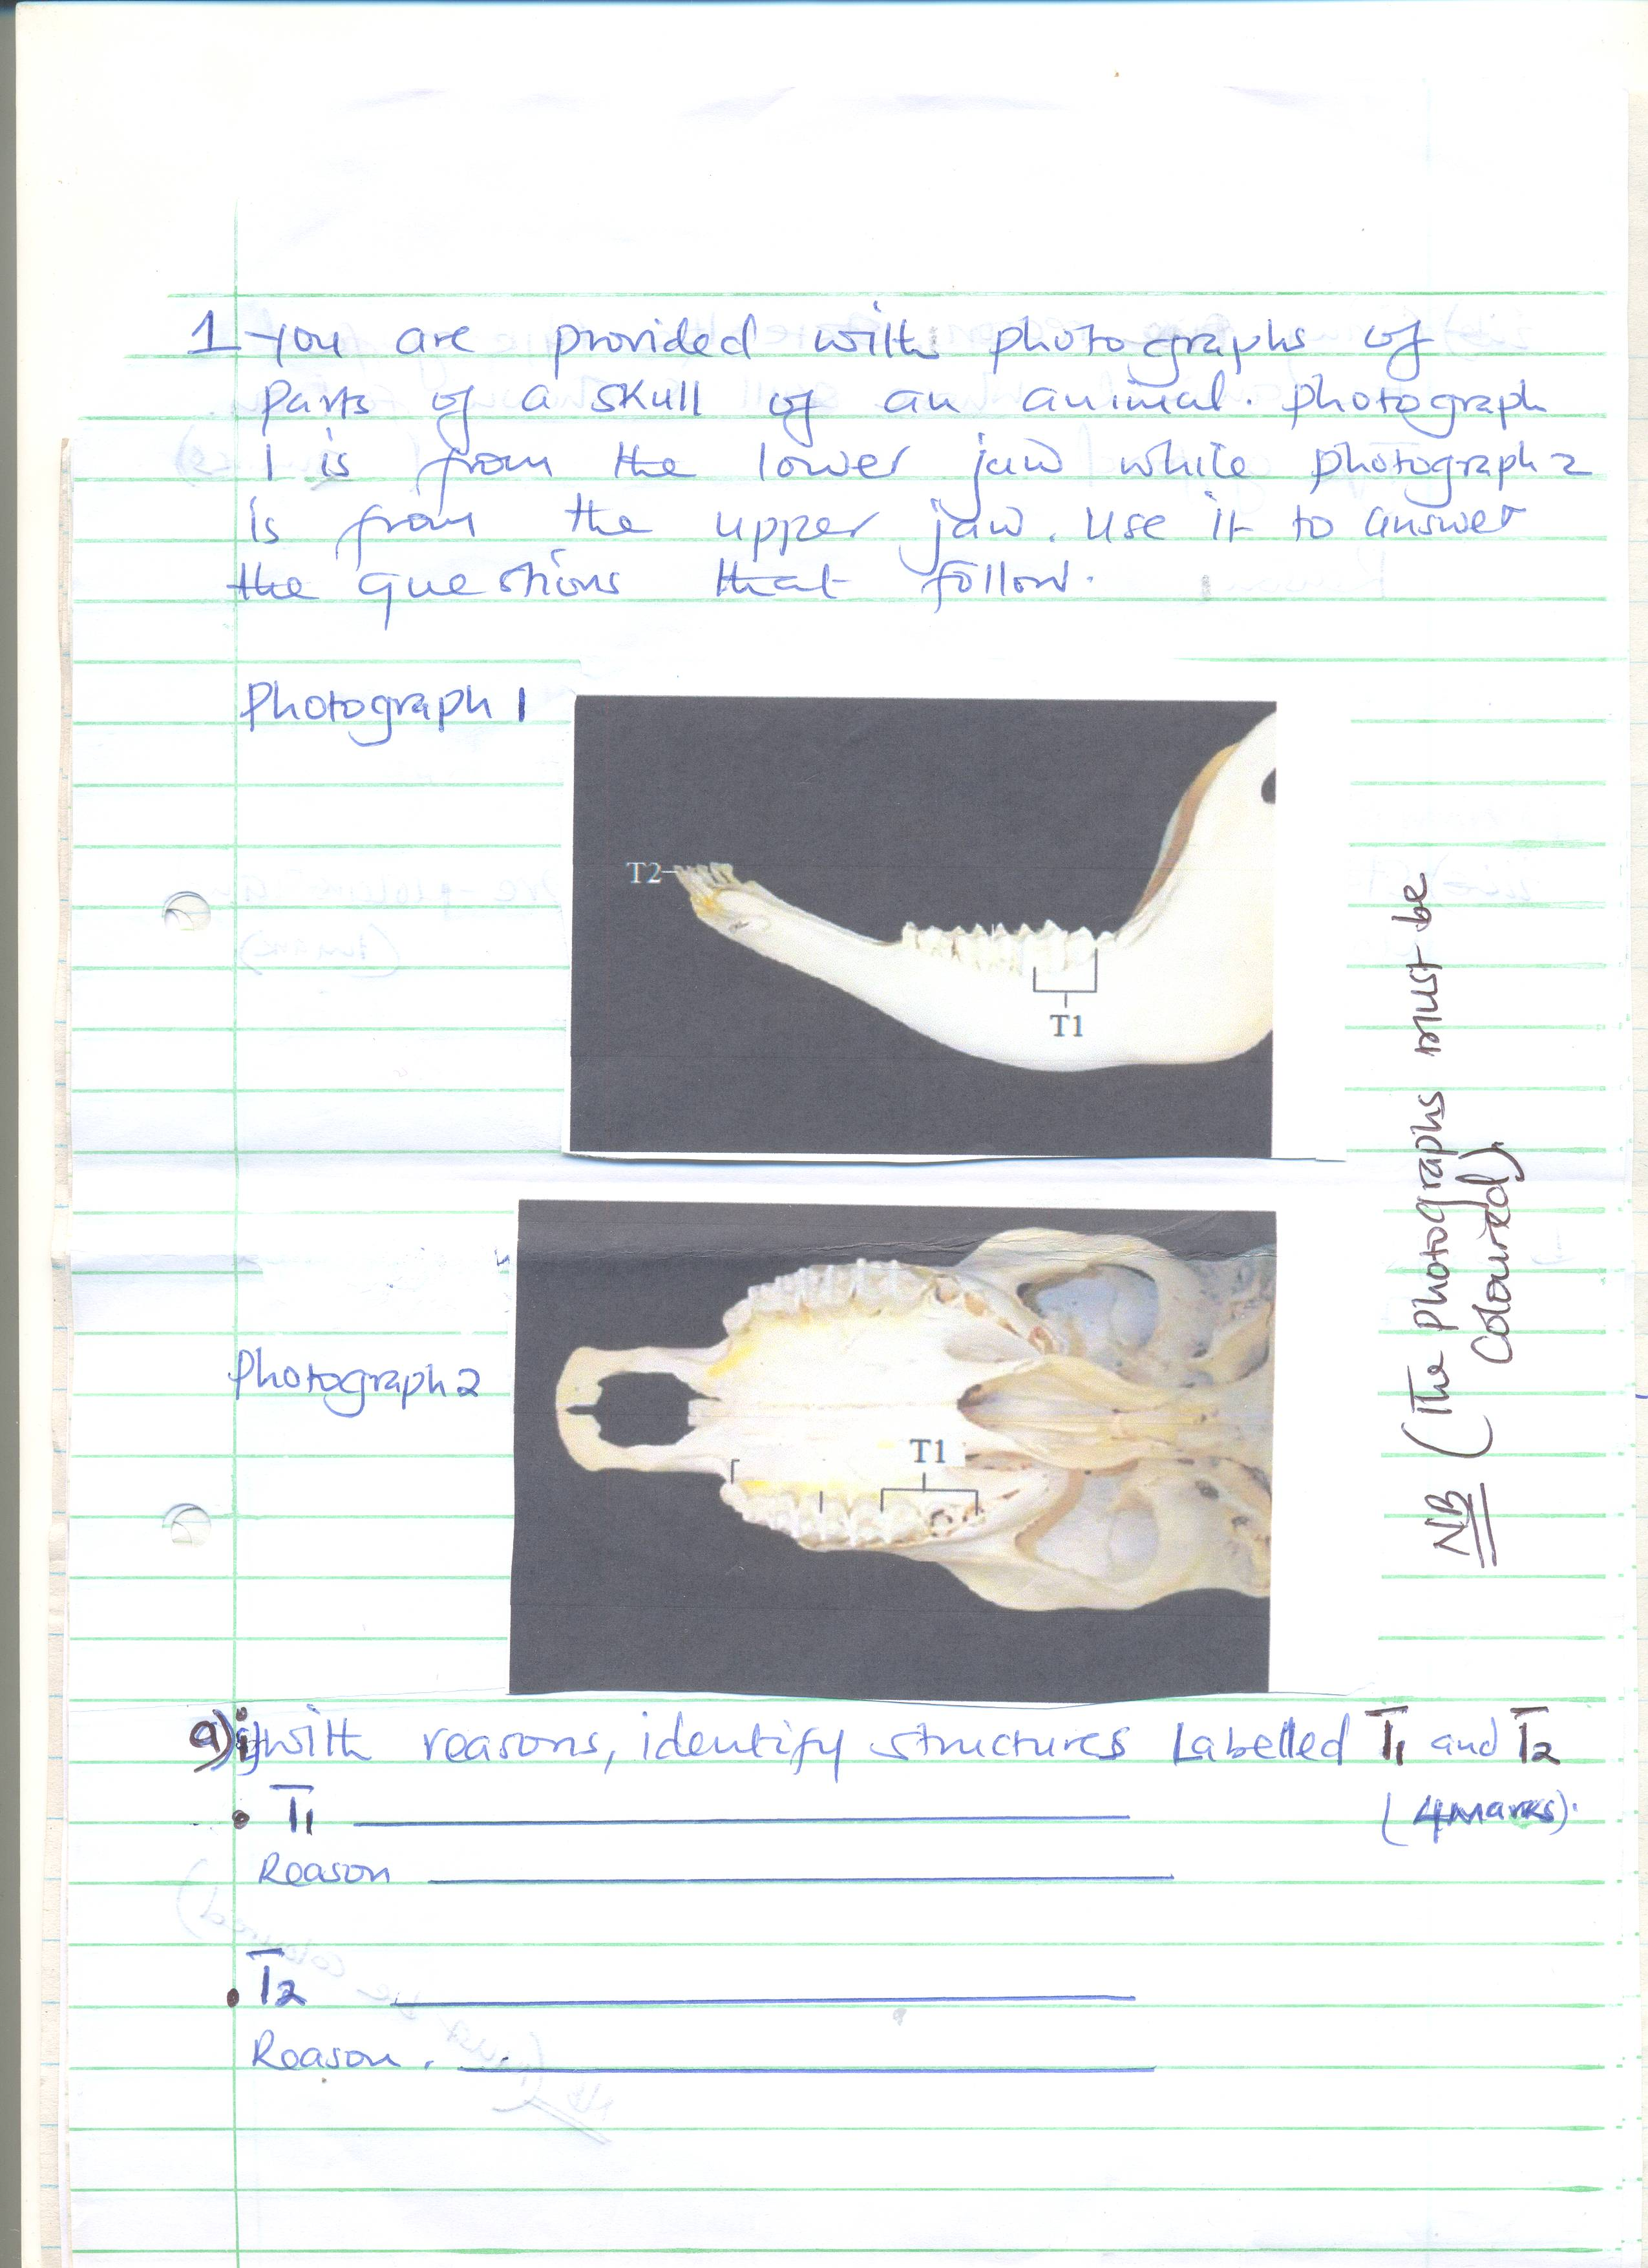 1 You are provided with photographs of
parts of a skull of an animal. photograph
1 is from the lower jaw while photograph 2
is from the upper jaw. Use it to answer
the questions that follow.
Photograph 1
T2
T1
Photograph 2
T1
NB (The photographs must be
Coloured).
a)i) with reasons, identify structures Labelled T1 and T2
(4marks).
• T1
Reason
• T2
Reason.